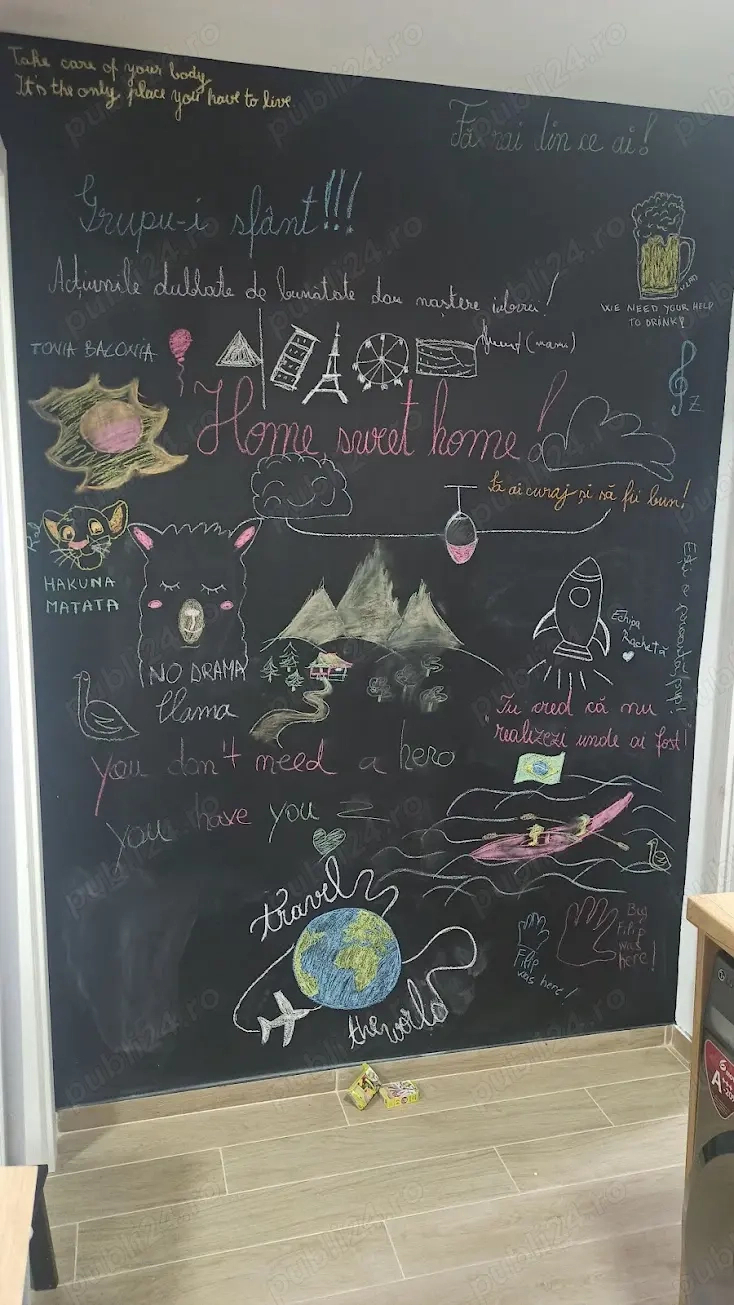 Take care of your body
It's the only place you have to live.
Fă rai din ce ai!
Grupu-i sfânt!!!
Acțiunile dublate de bunătate dau naștere iubirii!
WE NEED YOUR HELP
TO DRINK!
TONIA BALONIA
(mami)
Z
Home sweet home!
Să ai curaj și să fii bun!
HAKUNA
MATATA
NO DRAMA
llama
Echipa
Rachetă
"Tu cred că nu
realizezi unde ai fost!"
you don't need a hero
you have you
travel
the world
Filip
was here!
Big
Filip
was
here!
A+++
publi24.ro